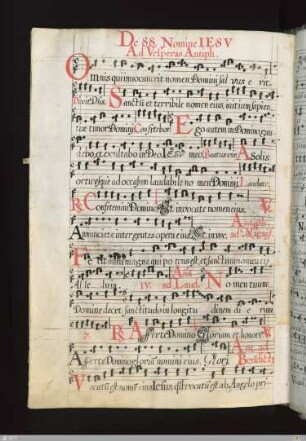 De SS. Nomine IESV
Ad Vesperas Antiph.
Omnis qui invocaverit nomen Domini sal vus e rit.
Dixit Dñs. Sanctū et terribile nomen eius, initium sapien
tiæ timor Domini. Confitebor. Ego autem in Domino gau
debo, et exultabo in Deo IESV meo. Beatus vir. A solis
ortu usque ad occasum laudabile no men Domini. Laudate.
R. Confitemini Domino, et invocate nomen eius. V.
Annunciate inter gentes opera eius, et invoc. ad Magnif.
Fe cit mihi magna qui potens est, et sanctum nomen eius
Alle luia. Ant. IV. ad Laud. Nomen tuum
Domine decet sanctitudo in longitu dinem di e rum
R. Afferte Domino Gloriam et honorē. V.
Afferte Domino gloriā nomini eius. Glori Ant. ad Benedict.
Vocatū est nomē eius Iesus, qđ vocatū est ab Angelo pri